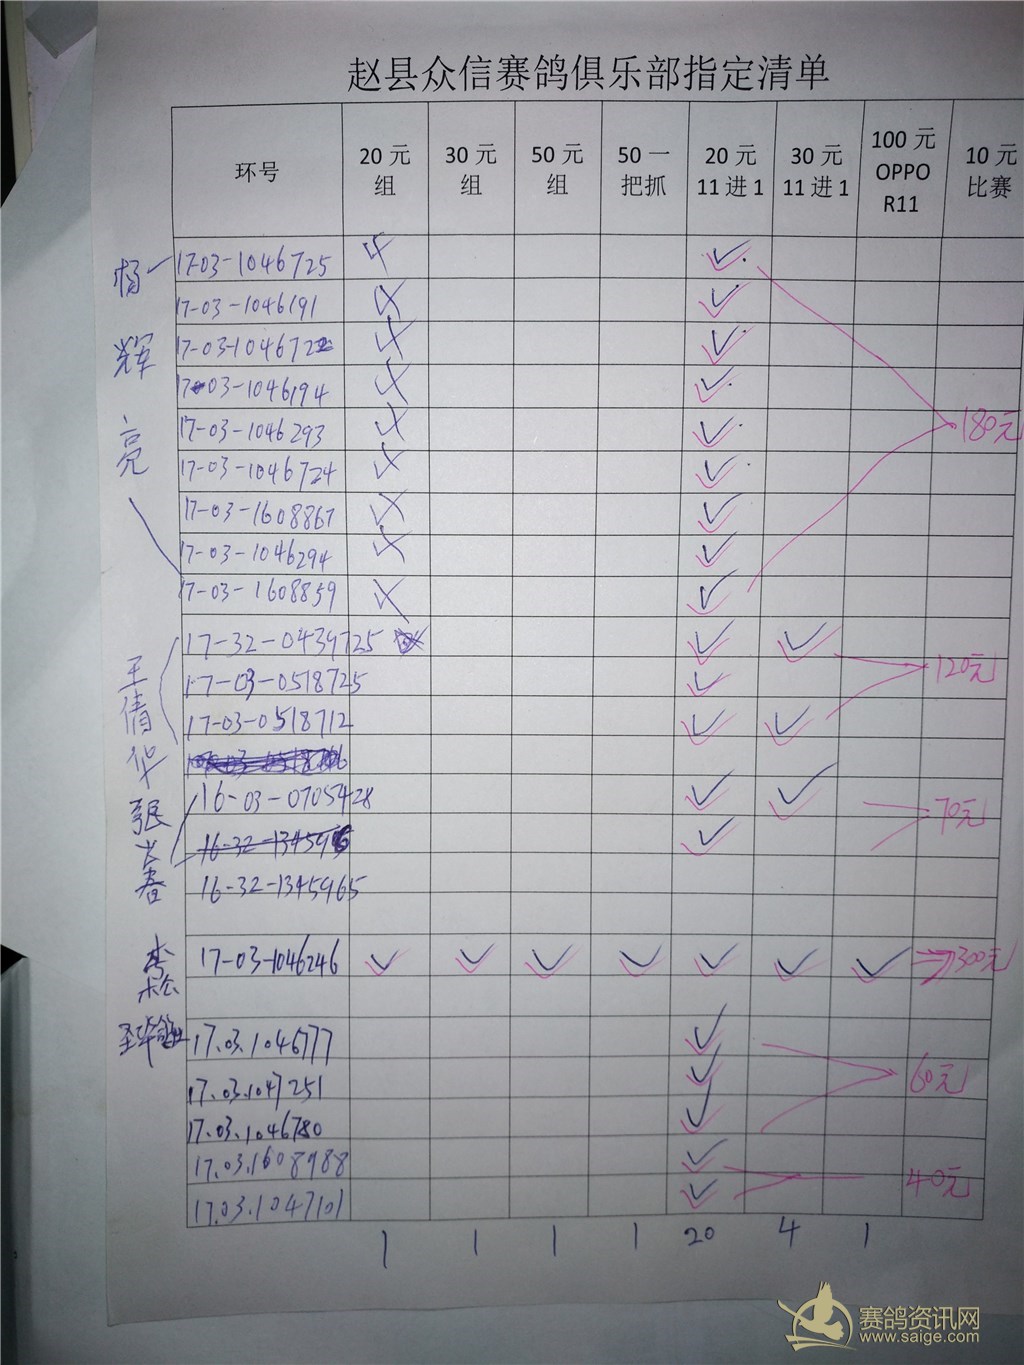 赵县众信赛鸽俱乐部指定清单
环号 20元组 30元组 50元组 50一把抓 20元11进1 30元11进1 100元OPPO R11 10元比赛
杨辉亮
17-03-1046725
17-03-1046191
17-03-1046722
17-03-1046194
17-03-1046293
17-03-1046724
17-03-1608867
17-03-1046294
17-03-1608859
180元
王倩华
17-32-0439725
17-03-0518725
17-03-0518712
120元
16-03-0705428
16-32-1345965
70元
17-03-1046246
300元
17.03.1046777
17.03.1047251
17.03.1046780
60元
17.03.1608988
17.03.1047101
40元
1 1 1 1 20 4 1
赛鸽资讯网
www.saige.com